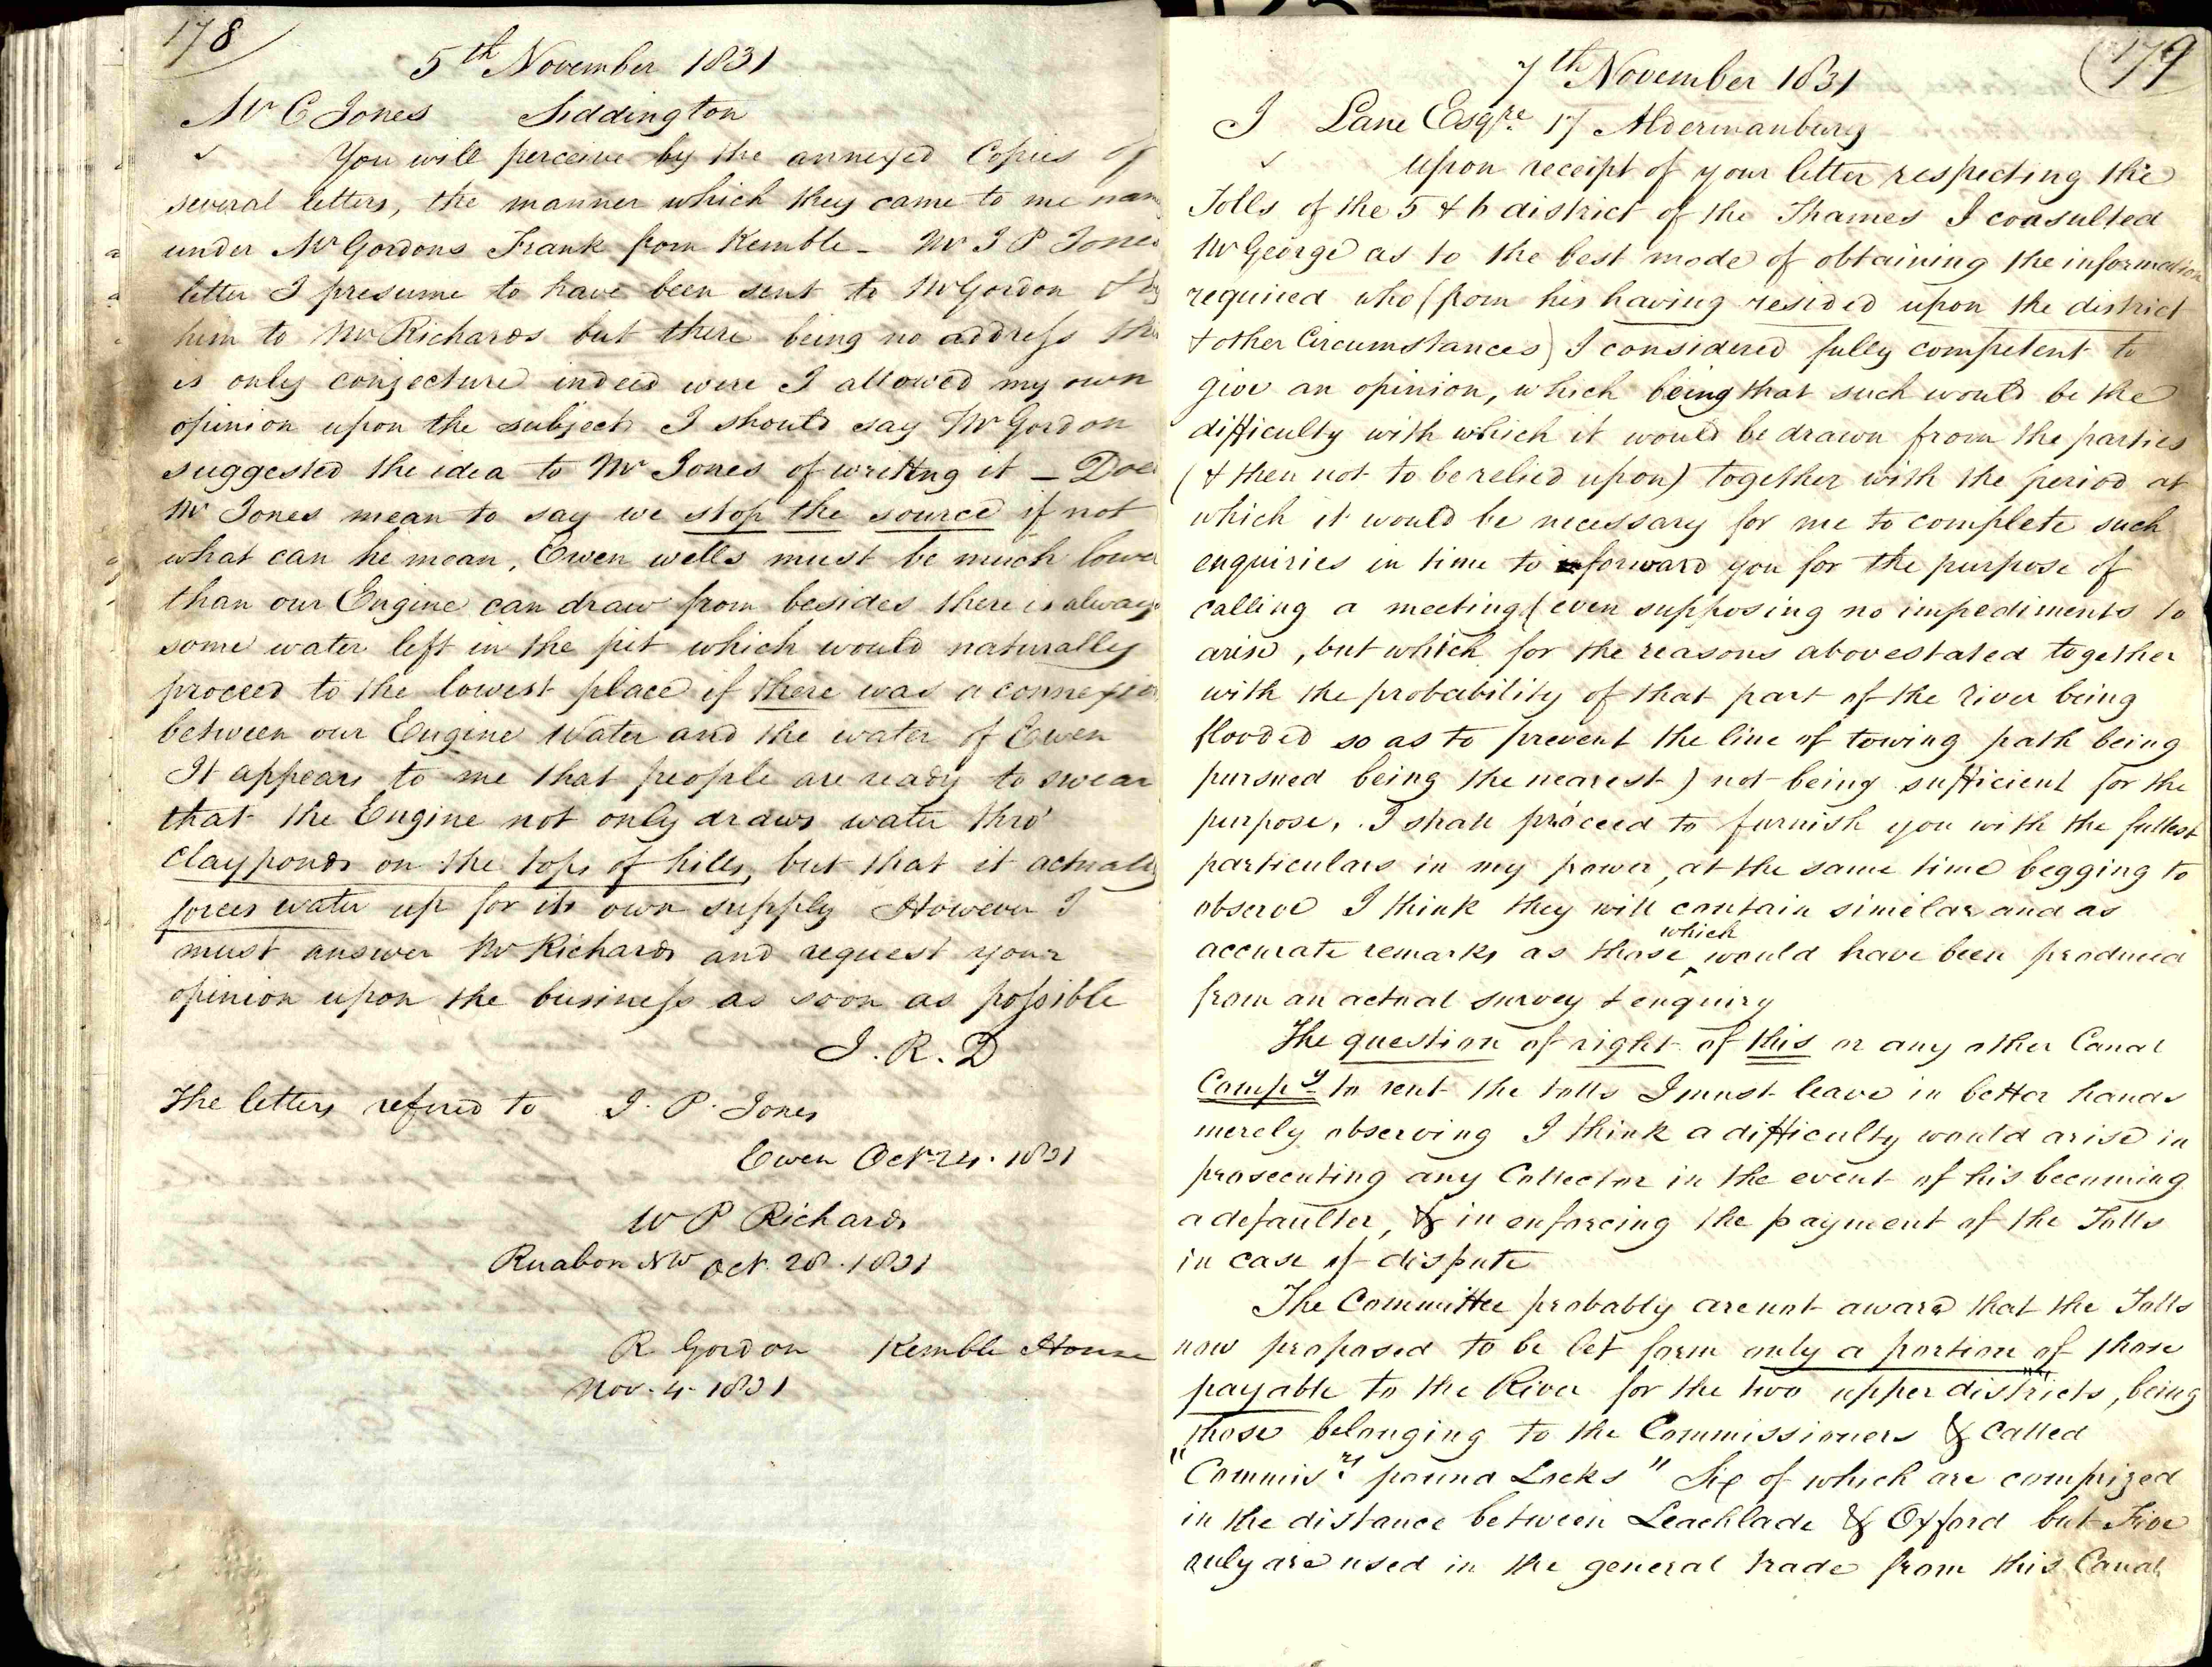 178
5th November 1831
Mr C Jones Siddington
You will perceive by the annexed Copies of
several letters, the manner which they came to me nam
under Mr Gordons Frank from Kemble - Mr J P Jones
letter I presume to have been sent to Mr Gordon & by
him to Mr Richards but there being no address this
is only conjecture indeed were I allowed my own
opinion upon the subject I should say Mr Gordon
suggested the idea to Mr Jones of writing it - Does
Mr Jones mean to say we stop the source if not
what can he mean, Ewen wells must be much lower
than our Engine can draw from besides there is always
some water left in the pit which would naturally
proceed to the lowest place if there was a connexion
between our Engine Water and the water of Ewen
It appears to me that people are ready to swear
that the Engine not only draws water thro'
clay ponds on the tops of hills, but that it actually
forces water up for its own supply However I
must answer Mr Richards and request your
opinion upon the business as soon as possible
J. R. D
The letters refered to J. P. Jones
Ewen Octr 24. 1831
W P Richards
Ruabon NW Oct. 28. 1831
R Gordon Kemble House
Nov. 4. 1831
179
7th November 1831
J Lane Esqre 17 Aldermanbury
Upon receipt of your letter respecting the
Tolls of the 5 & 6 district of the Thames I consulted
Mr George as to the best mode of obtaining the information
required who (from his having resided upon the district
& other Circumstances) I considered fully competent to
give an opinion, which being that such would be the
difficulty with which it would be drawn from the parties
(& then not to be relied upon) together with the period at
which it would be necessary for me to complete such
enquiries in time to forward you for the purpose of
calling a meeting (even supposing no impediments to
arise, but which for the reasons abovestated together
with the probability of that part of the river being
flooded so as to prevent the line of towing path being
pursued being the nearest) not being sufficient for the
purpose, I shall proceed to furnish you with the fullest
particulars in my power, at the same time begging to
observe I think they will contain similar and as
accurate remarks as those which would have been produced
from an actual survey & enquiry
The question of right of this or any other Canal
Compy to rent the tolls I must leave in better hands
merely observing I think a difficulty would arise in
prosecuting any Collector in the event of his becoming
a defaulter, & in enforcing the payment of the Tolls
in case of dispute
The Committee probably are not aware that the Tolls
now proposed to be let form only a portion of those
payable to the River for the two upper districts, being
those belonging to the Commissioners & called
"Commisrs pound Locks" Six of which are comprized
in the distance between Leachlade & Oxford but Five
only are used in the general trade from this Canal